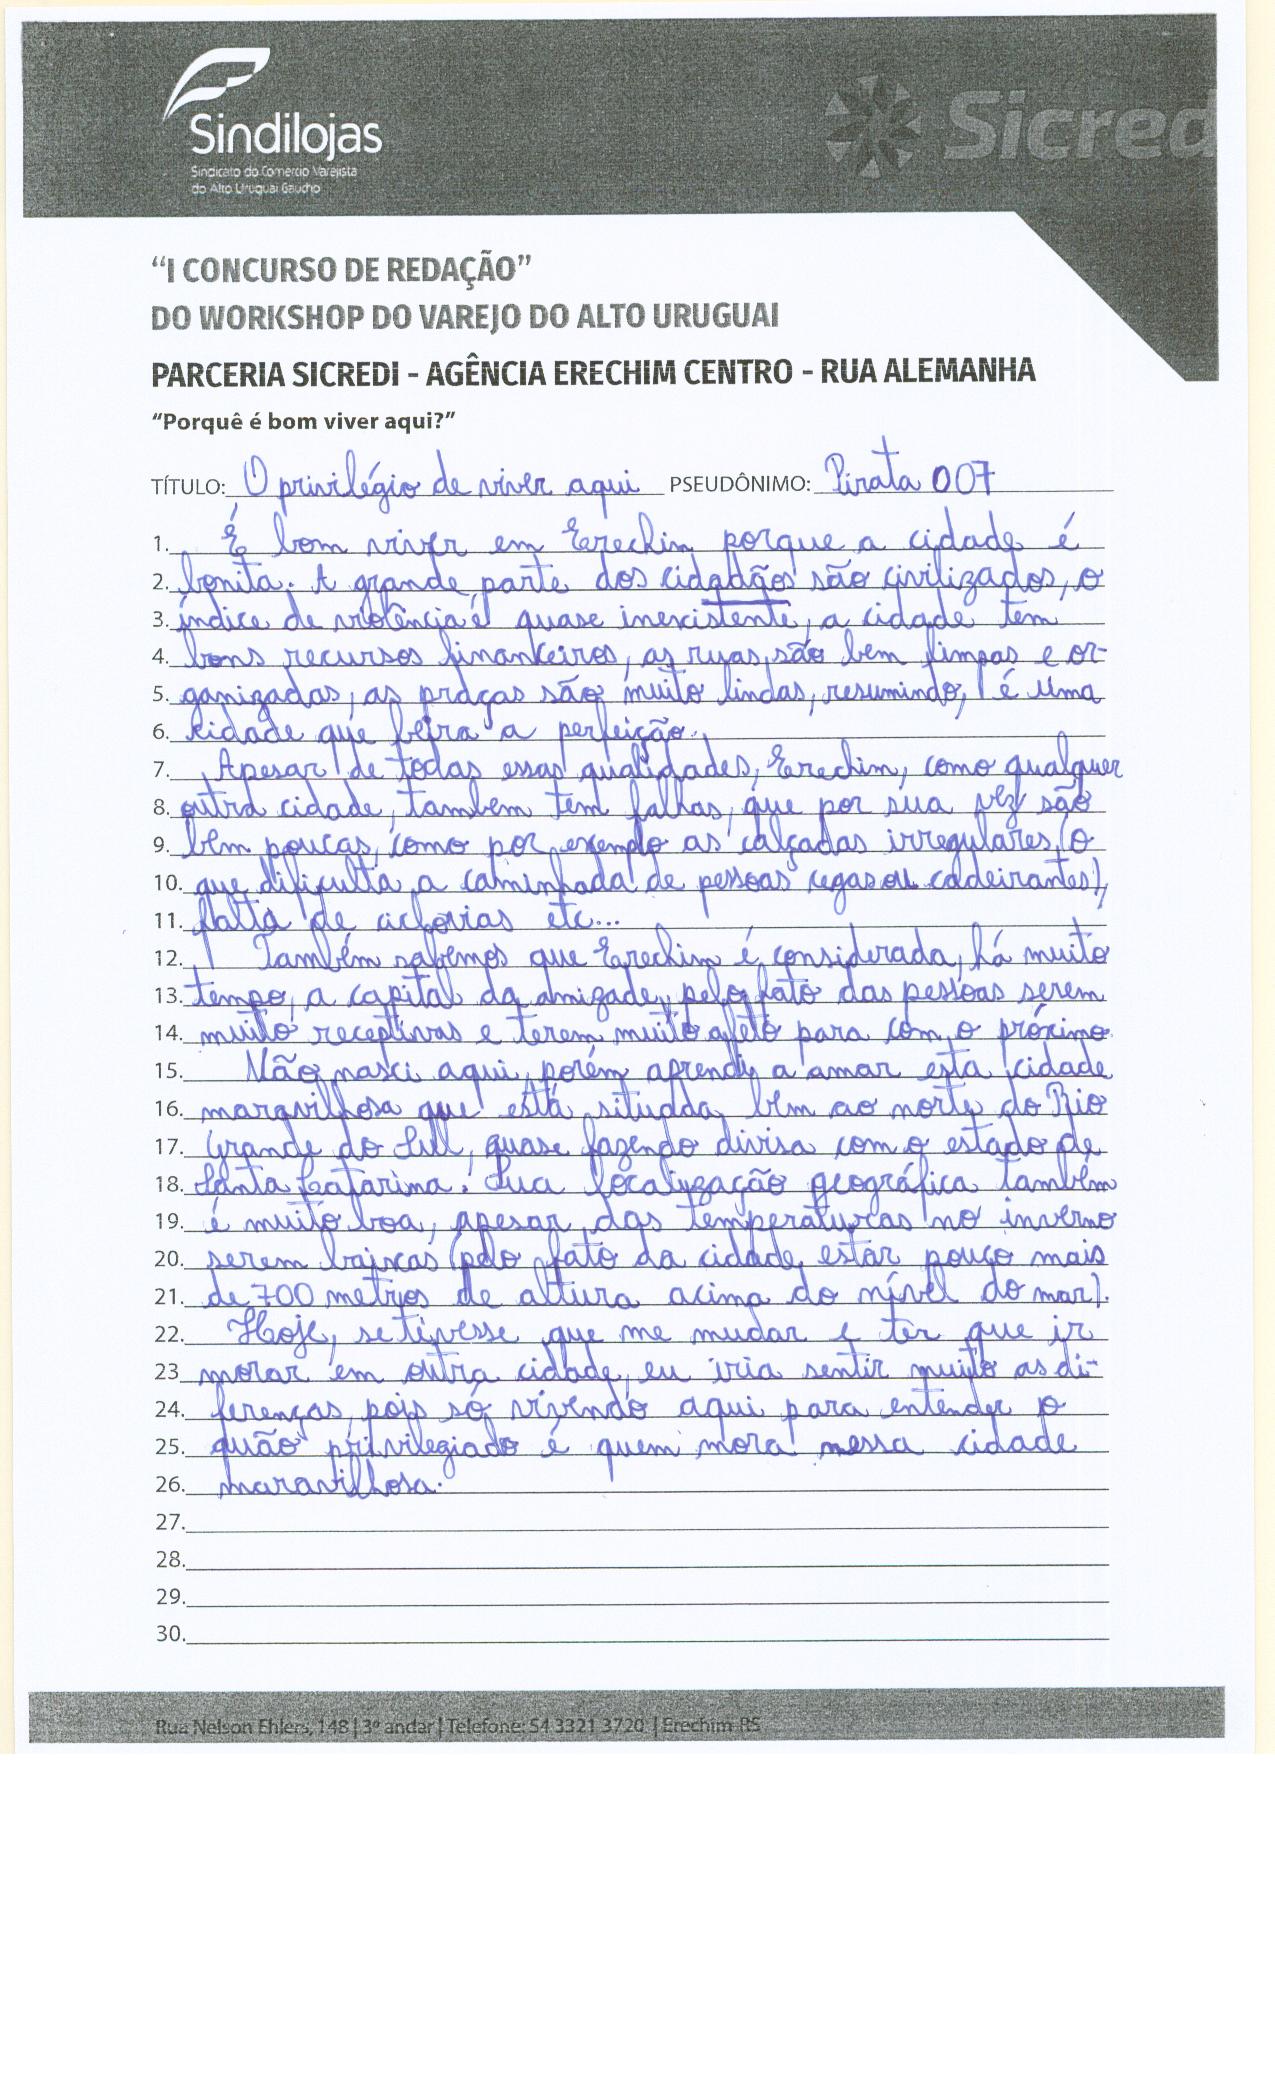 Sindilojas
Sindicato do Comércio Varejista
do Alto Uruguai Gaúcho
Sicred
“I CONCURSO DE REDAÇÃO”
DO WORKSHOP DO VAREJO DO ALTO URUGUAI
PARCERIA SICREDI - AGÊNCIA ERECHIM CENTRO - RUA ALEMANHA
“Porquê é bom viver aqui?”
TÍTULO: O privilégio de viver aqui PSEUDÔNIMO: Pirata 007
1. É bom viver em Erechim porque a cidade é
2. bonita. A grande parte dos cidadãos são civilizados, o
3. índice de violência é quase inexistente, a cidade tem
4. bons recursos financeiros, as ruas são bem limpas e or-
5. ganizadas, as praças são muito lindas, resumindo, é uma
6. cidade que beira a perfeição.
7. Apesar de todas essas qualidades, Erechim, como qualquer
8. outra cidade, também tem falhas, que por sua vez são
9. bem poucas, como por exemplo as calçadas irregulares (o
10. que dificulta a caminhada de pessoas cegas ou cadeirantes),
11. falta de ciclovias etc...
12. Também sabemos que Erechim é considerada, há muito
13. tempo, a capital da amizade, pelo fato das pessoas serem
14. muito receptivas e terem muito afeto para com o próximo.
15. Não nasci aqui, porém aprendi a amar esta cidade
16. maravilhosa que está situada bem ao norte do Rio
17. Grande do Sul, quase fazendo divisa com o estado de
18. Santa Catarina. Sua localização geográfica também
19. é muito boa, apesar das temperaturas no inverno
20. serem baixas (pelo fato da cidade estar pouco mais
21. de 700 metros de altura acima do nível do mar).
22. Hoje, se tivesse que me mudar e ter que ir
23. morar em outra cidade, eu iria sentir muito as di-
24. ferenças, pois só vivendo aqui para entender o
25. quão privilegiado é quem mora nessa cidade
26. maravilhosa.
27.
28.
29.
30.
Rua Nelson Ehlers, 148 | 3º andar | Telefone: 54 3321 3720 | Erechim-RS